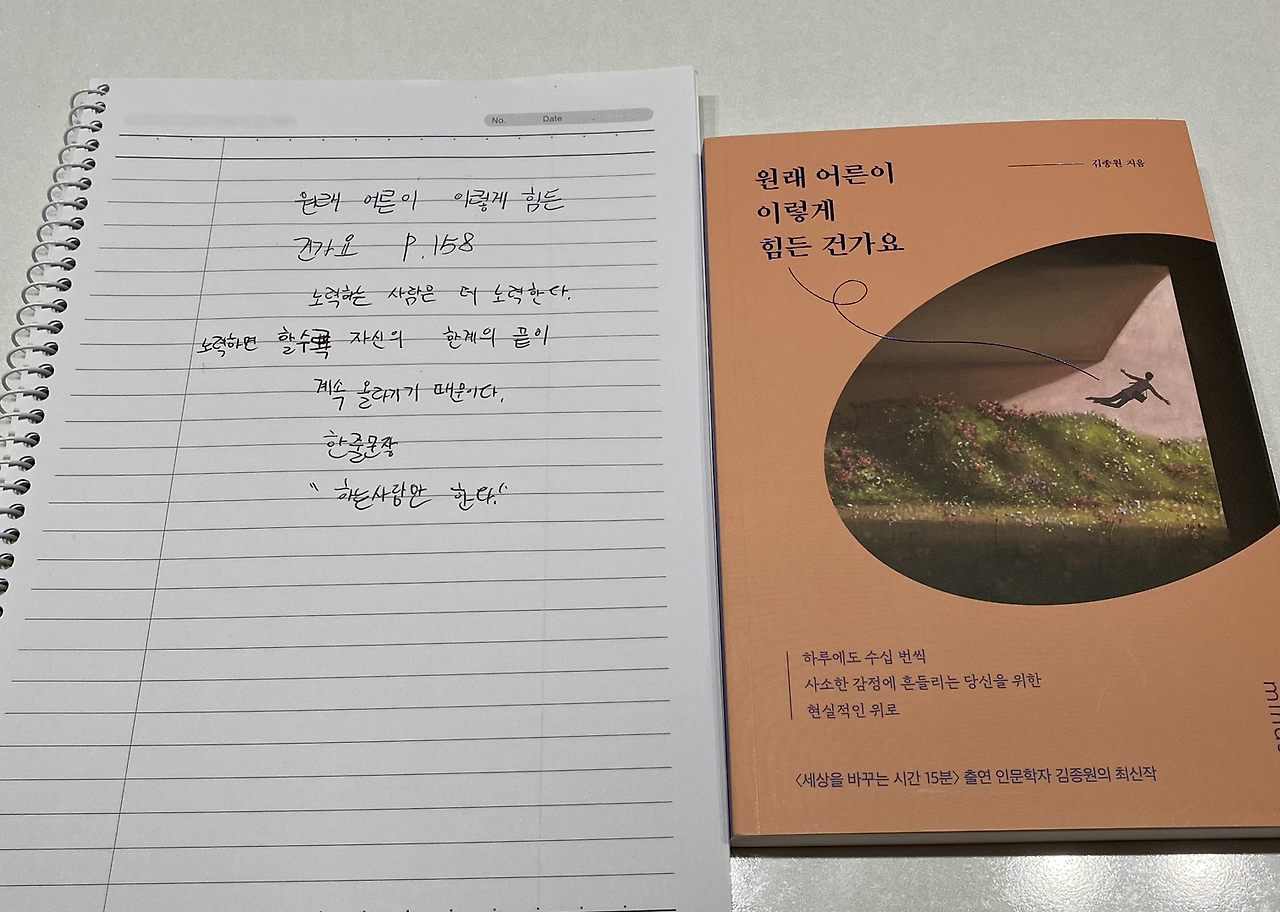 No. Date
원래 어른이 이렇게 힘든
건가요 P.158
노력하는 사람은 더 노력한다.
노력하면 할수록 자신의 한계의 끝이
계속 올라가기 때문이다.
한줄문장
"하는사람만 한다."
원래 어른이
이렇게
힘든 건가요
김종원 지음
하루에도 수십 번씩
사소한 감정에 흔들리는 당신을 위한
현실적인 위로
<세상을 바꾸는 시간 15분> 출연 인문학자 김종원의 최신작